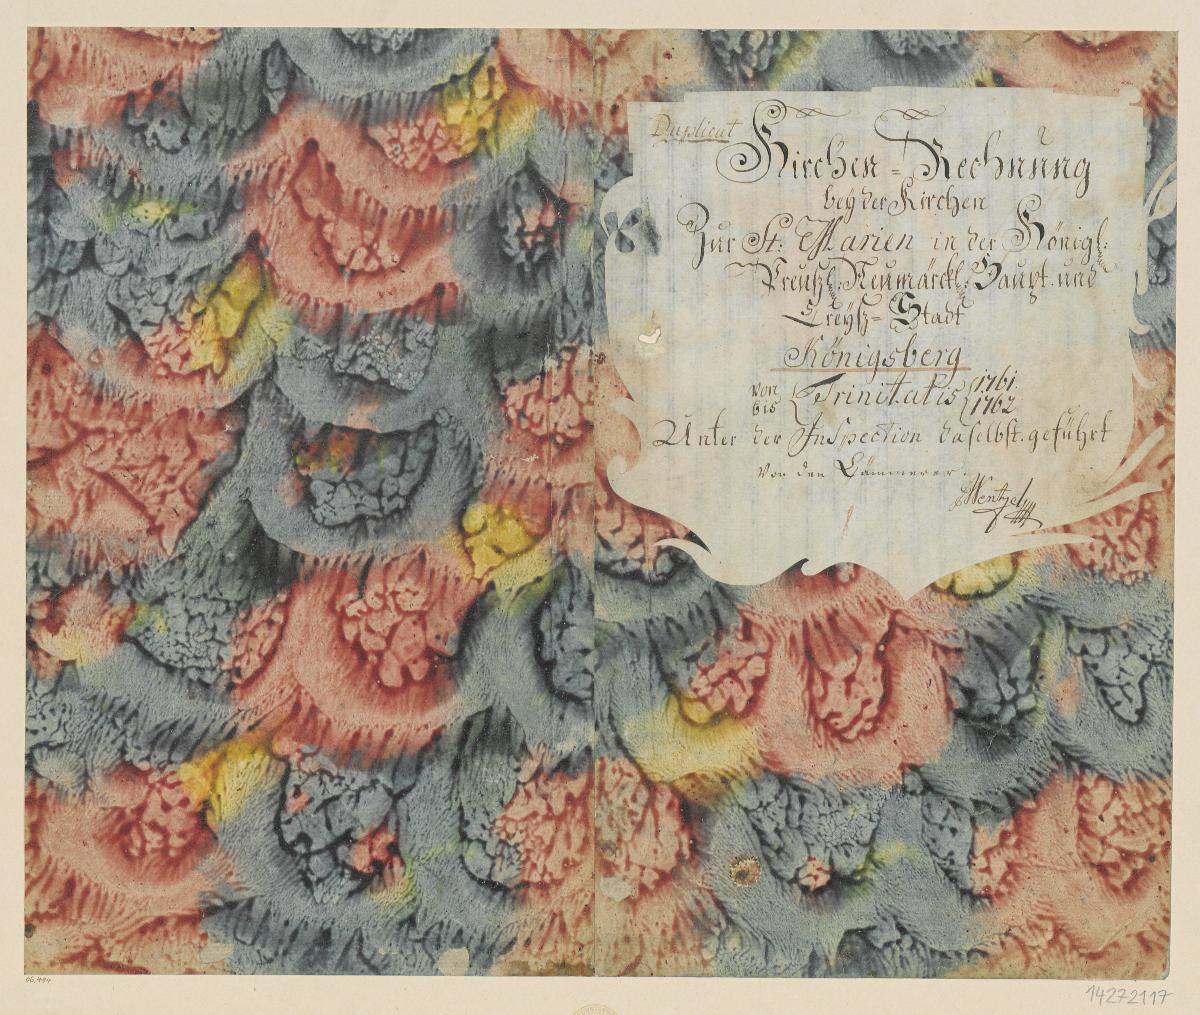 Duplicat
Kirchen=Rechnung
bey der Kirchen
Zur St: Marien in der Königl:
Preußl: Neumärckl: Haupt. und
Creyß=Stadt
Königsberg
von bis { Trinitatis { 1761. 1762
Unter der Inspection daselbst. geführt
von den Cämmerer.
Wentzel
06,494
14272117